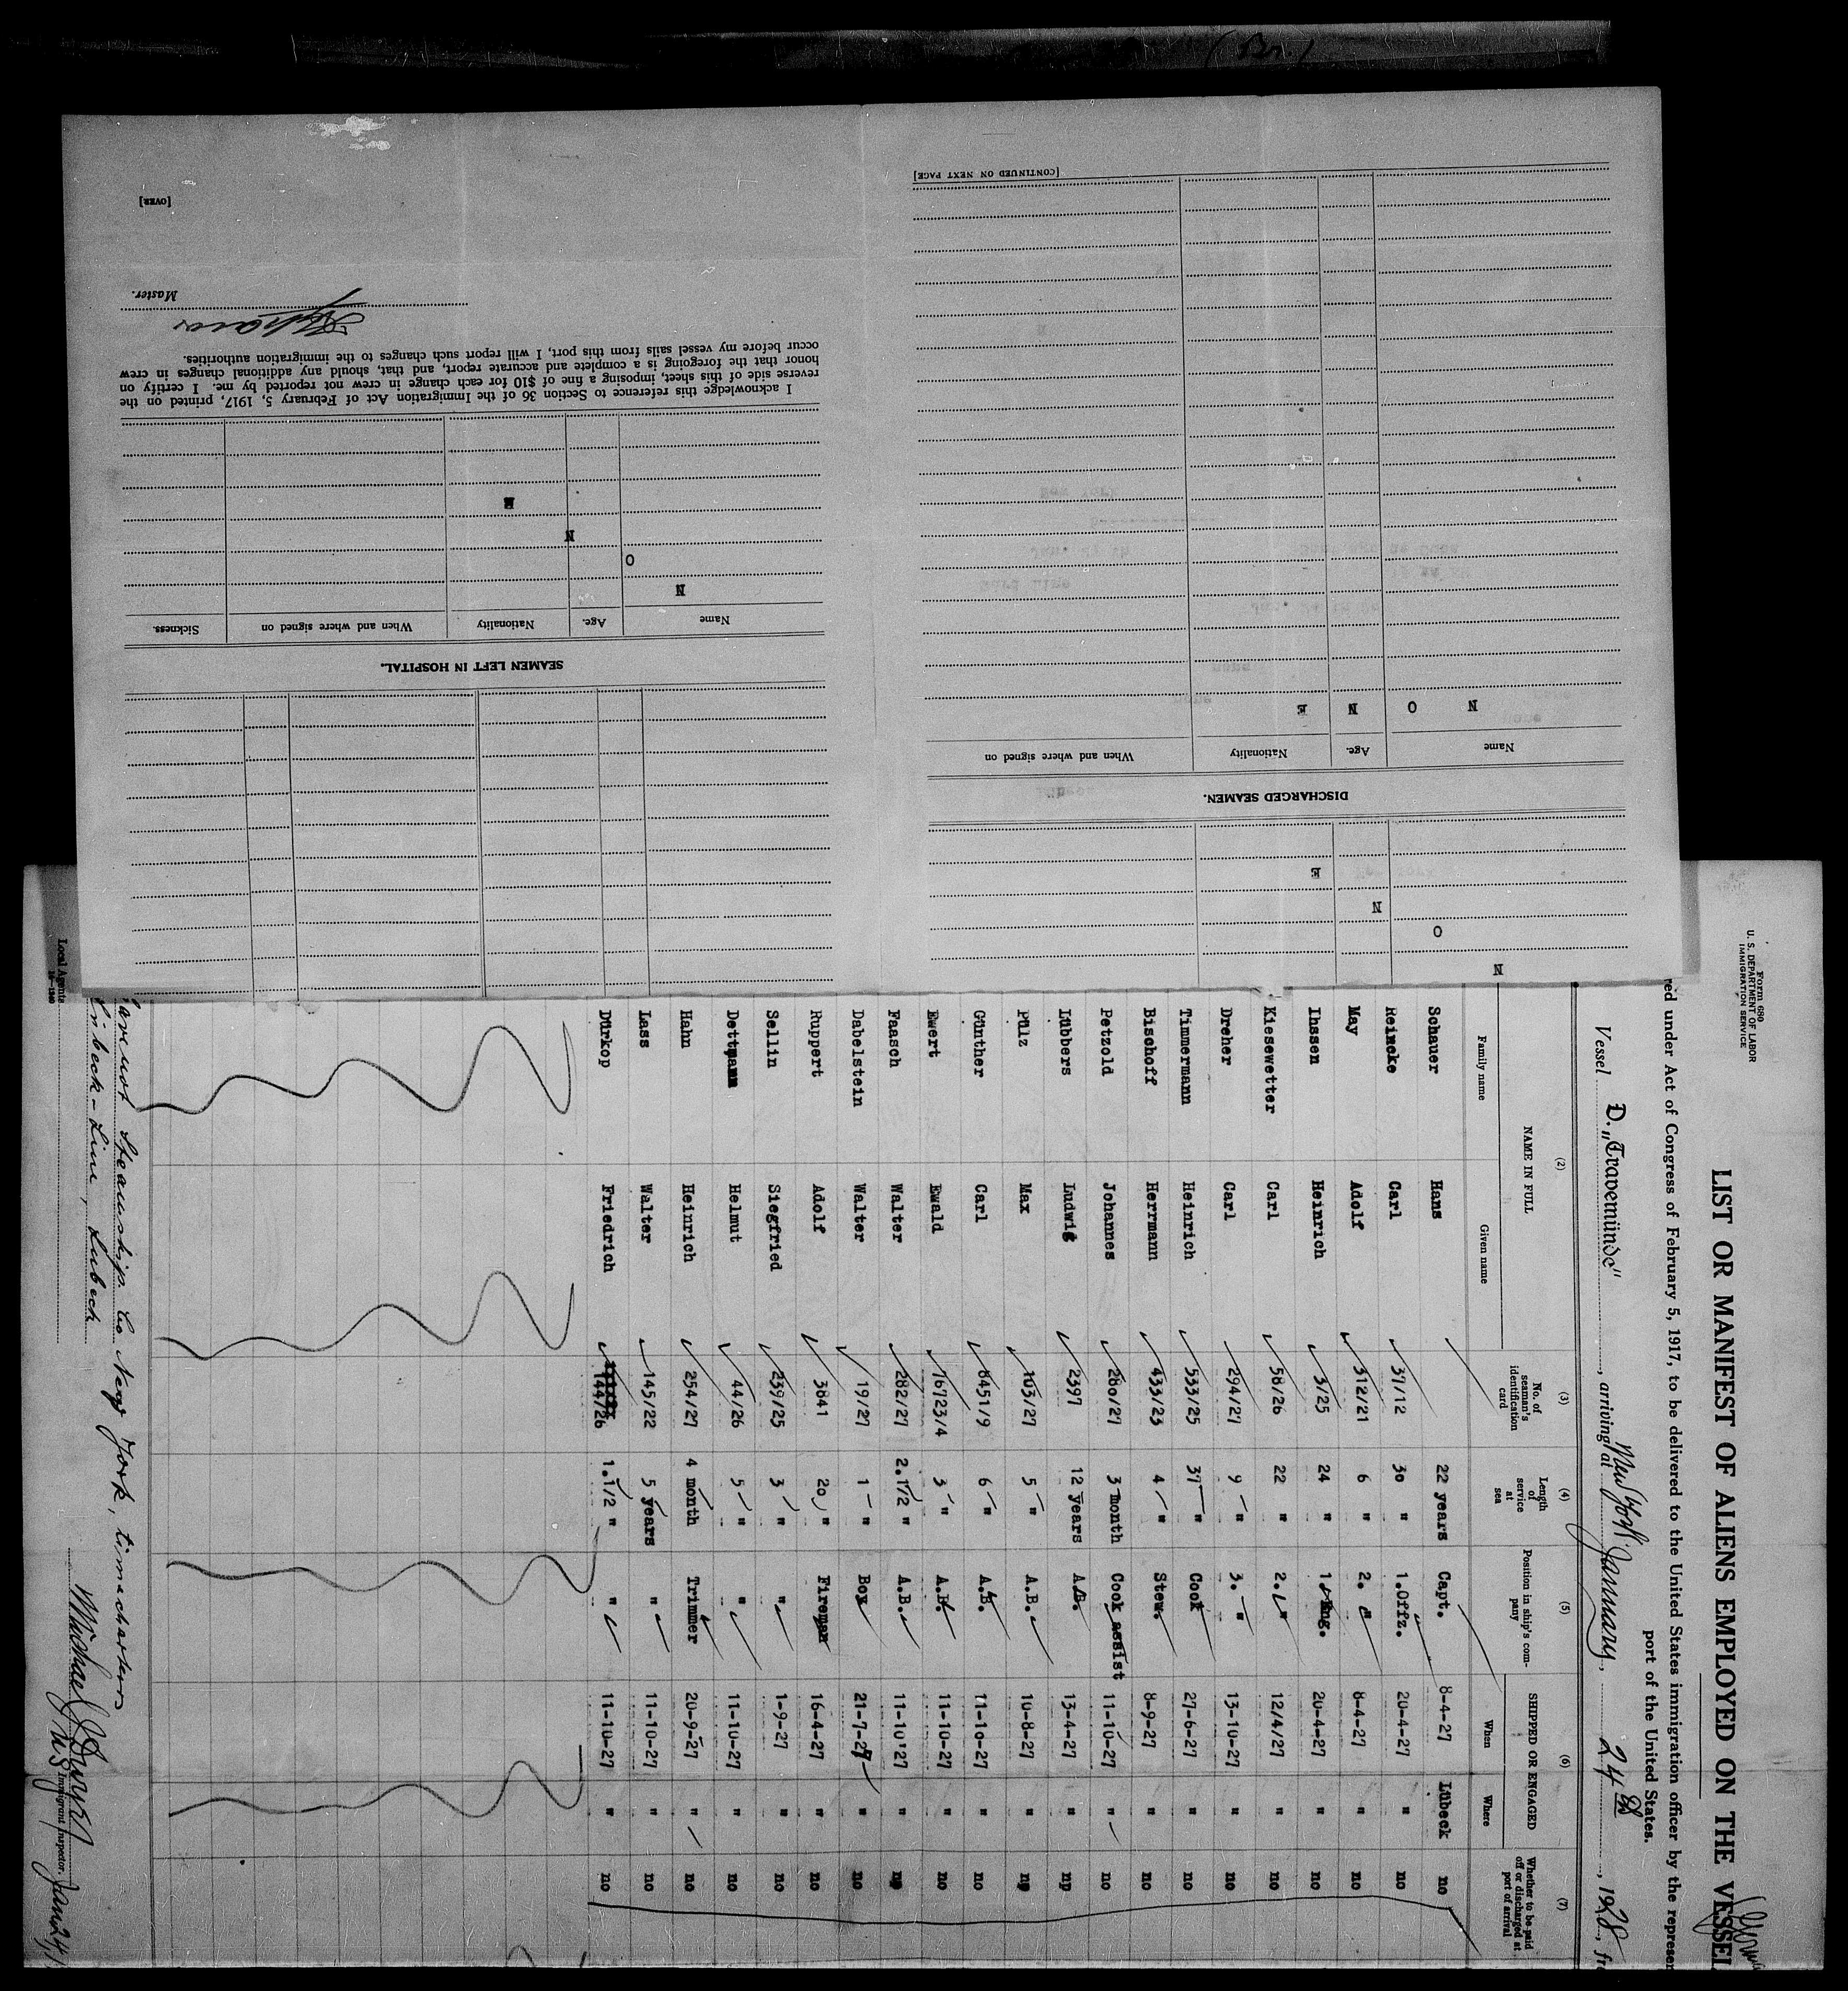 ( Br. )
[CONTINUED ON NEXT PAGE]
DISCHARGED SEAMEN.
Name Age. Nationality When and where signed on
N O N E
N
O
N
E
SEAMEN LEFT IN HOSPITAL.
Name Age. Nationality When and where signed on Sickness.
N
O
N
E
I acknowledge this reference to Section 36 of the Immigration Act of February 5, 1917, printed on the
reverse side of this sheet, imposing a fine of $10 for each change in crew not reported by me. I certify on
honor that the foregoing is a complete and accurate report, and that, should any additional changes in crew
occur before my vessel sails from this port, I will report such changes to the immigration authorities.
Master.
[OVER]
Form 680
U. S. DEPARTMENT OF LABOR
IMMIGRATION SERVICE
LIST OR MANIFEST OF ALIENS EMPLOYED ON THE VESSEL
red under Act of Congress of February 5, 1917, to be delivered to the United States immigration officer by the represen
port of the United States.
Vessel D. „Travemünde", arriving at New York, January, 24th, 1928, fr
(2) (3) (4) (5) (6) (7)
NAME IN FULL No. of seaman's identification card Length of service at sea Position in ship's company SHIPPED OR ENGAGED Whether to be paid off or discharged at port of arrival
Family name Given name When Where
Schauer Hans 22 years Capt. 8-4-27 Lübeck no
Reincke Carl 37/12 30 " 1.Offz. 20-4-27 " no
May Adolf 312/21 6 " 2. " 8-4-27 " no
Ihssen Heinrich 3/25 24 " 1. Eng. 20-4-27 " no
Kiesewetter Carl 58/26 22 " 2. " 12/4/27 " no
Dreher Carl 294/27 9 " 3. " 13-10-27 " no
Timmermann Heinrich 533/25 37 " Cook 27-6-27 " no
Bischoff Herrmann 433/23 4 " Stew. 8-9-27 " no
Petzold Johannes 280/27 3 month Cook assist 11-10-27 " no
Lübbers Ludwig 2397 12 years A.B. 13-4-27 " no
Pülz Max 103/27 5 " A.B. 10-8-27 " no
Günther Carl 8451/9 6 " A.B. 11-10-27 " no
Ewert Ewald 76723/4 3 " A.B. 11-10-27 " no
Faasch Walter 282/27 2.1/2 " A.B. 11-10'27 " no
Dabelstein Walter 19/27 1 " Boy 21-7-27 " no
Ruppert Adolf 3841 20 " Fireman 16-4-27 " no
Sellin Siegfried 239/25 3 " " 1-9-27 " no
Dettmann Helmut 44/26 5 " " 11-10-27 " no
Hahn Heinrich 254/27 4 month Trimmer 20-9-27 " no
Lass Walter 145/22 5 years " 11-10-27 " no
Dürkop Friedrich 144/26 1.1/2 " " 11-10-27 " no
Steamship Co New York, timecharters
Lübeck-Linie, Lübeck
Local Agents
Michael J Dwyer
U S Immigrant Inspector.
Jan 24/